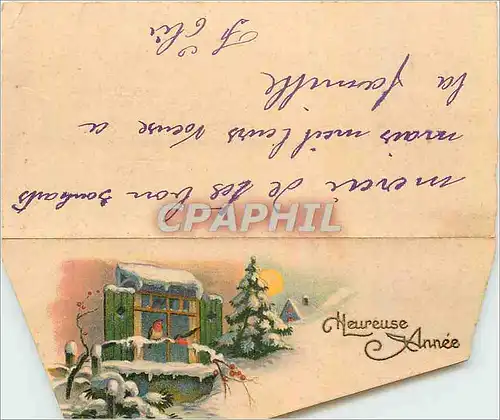 merci de tes bon souhaits
mais meilleurs voeuse a
la famille
CPAPHIL
Heureuse
Année